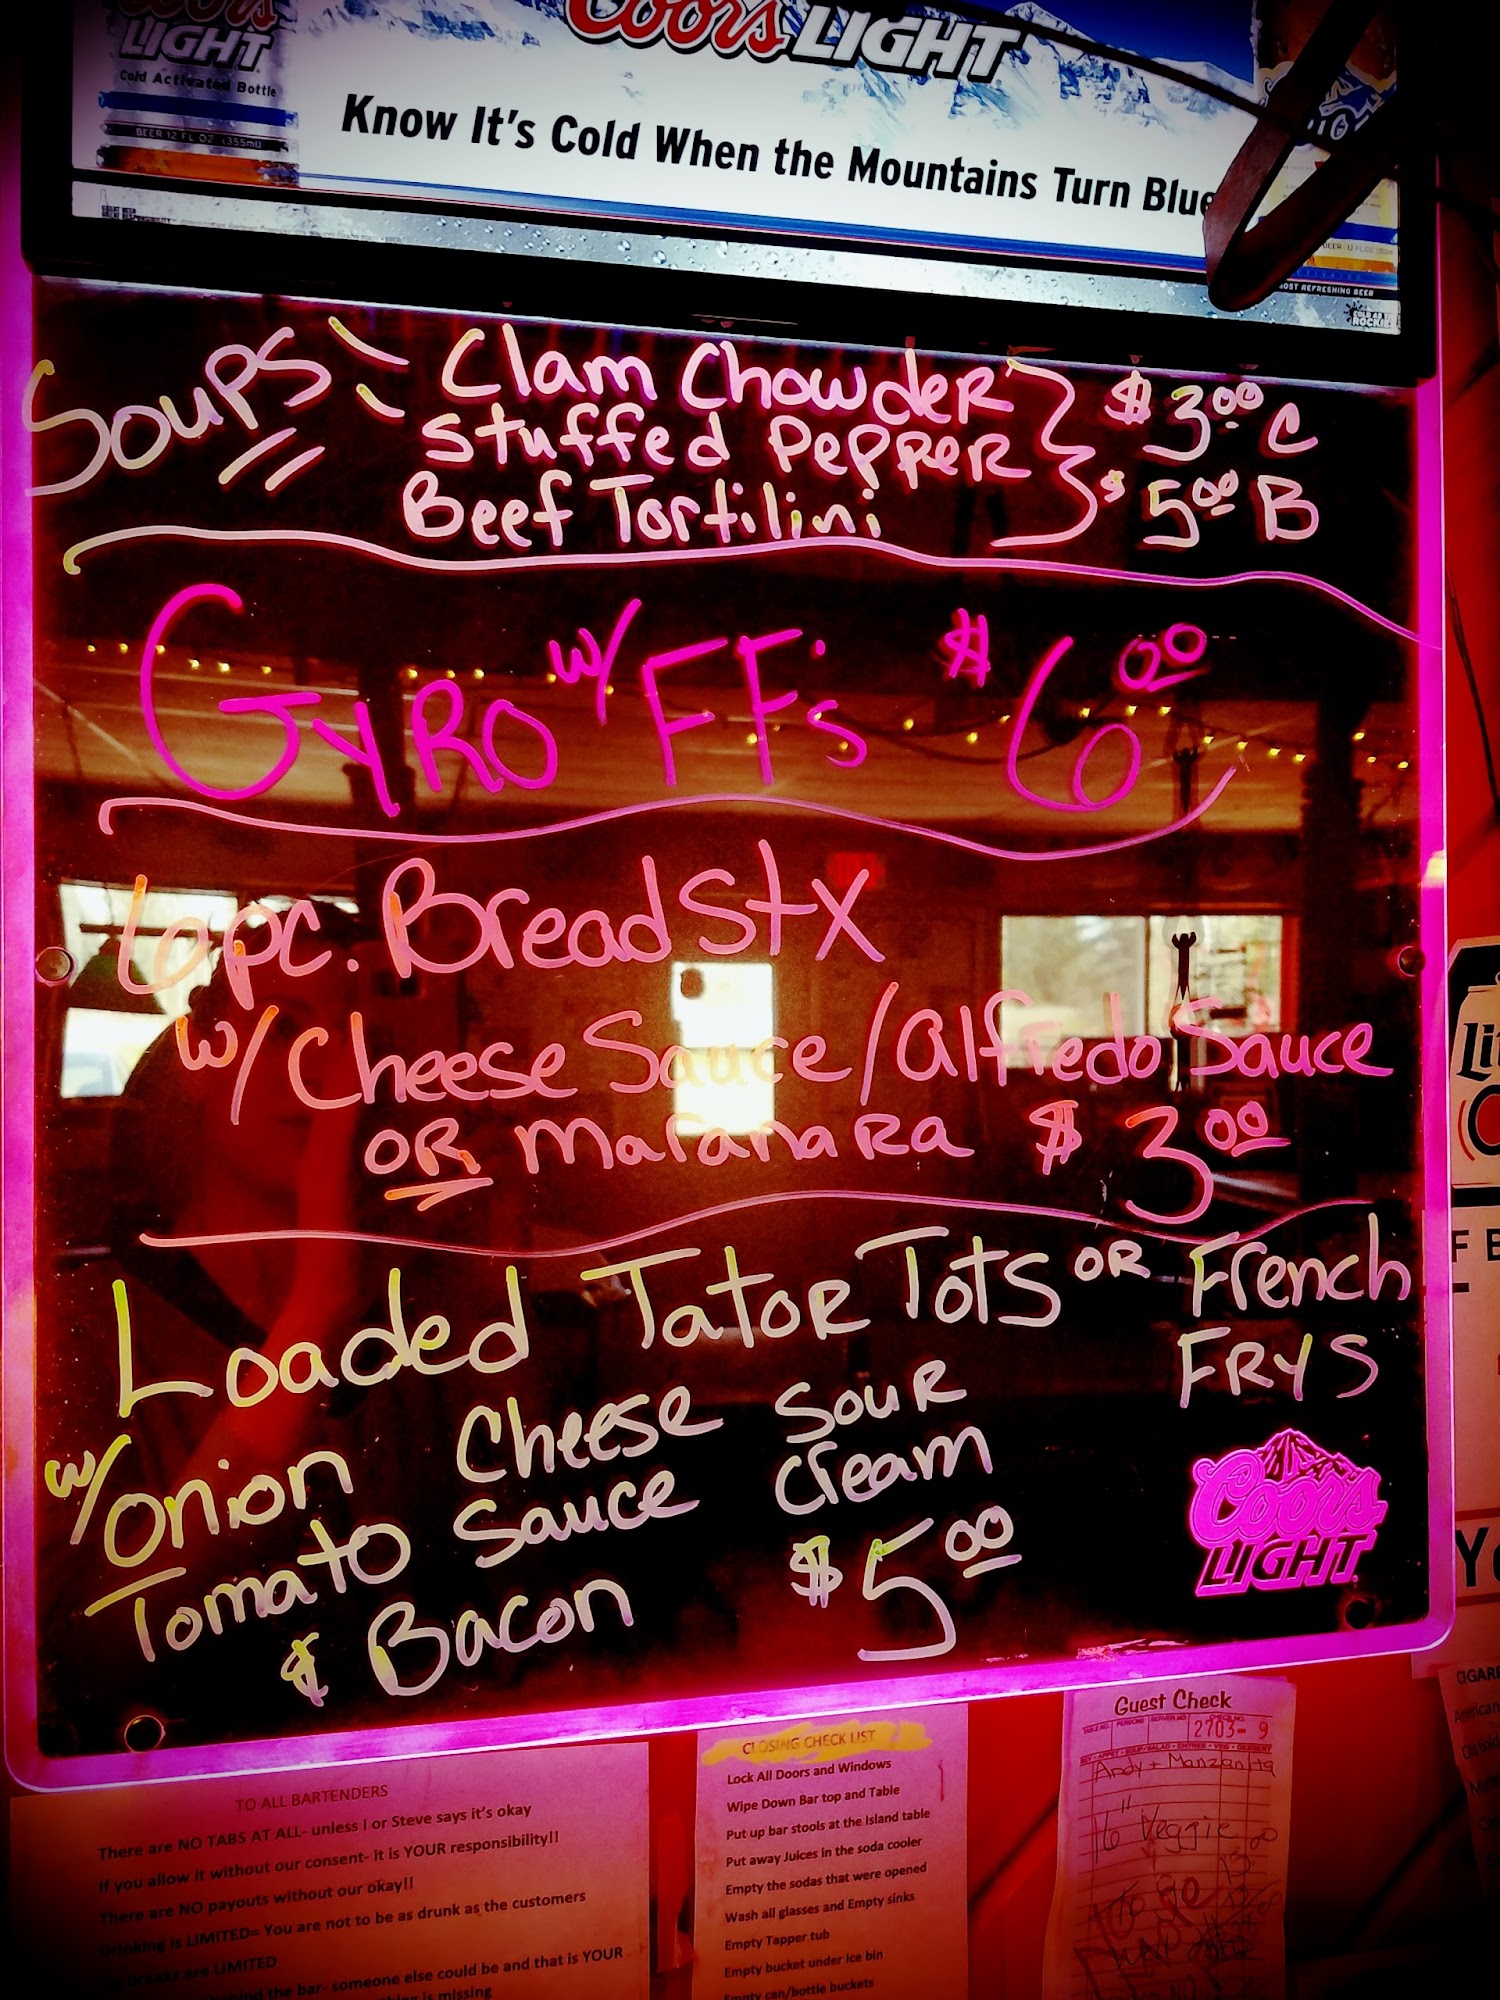 Coors LIGHT
Coors
LIGHT
Cold Activated Bottle
BEER 12 FL OZ (355ml)
Know It's Cold When the Mountains Turn Blue
MOST REFRESHING BEER
Soups: Clam Chowder } $3.00 C
Stuffed Pepper
Beef Tortilini $5.00 B
GYRO w/ FF's $6.00
6 pc. Breadstx
w/ Cheese Sauce/Alfredo Sauce
OR Maranara $3.00
Loaded Tator Tots OR French
FRYS
w/ Onion Cheese Sour
Tomato Sauce Cream
& Bacon $5.00
Coors
LIGHT
TO ALL BARTENDERS
There are NO TABS AT ALL- unless I or Steve says it's okay
If you allow it without our consent- it is YOUR responsibility!!
There are NO payouts without our okay!!
Drinking is LIMITED= You are not to be as drunk as the customers
breaks are LIMITED
behind the bar- someone else could be and that is YOUR
is missing
CLOSING CHECK LIST
Lock All Doors and Windows
Wipe Down Bar top and Table
Put up bar stools at the Island table
Put away Juices in the soda cooler
Empty the sodas that were opened
Wash all glasses and Empty sinks
Empty Tapper tub
Empty bucket under Ice bin
Empty can/bottle buckets
Guest Check
2703- 9
Andy + Manzanita
16" Veggie